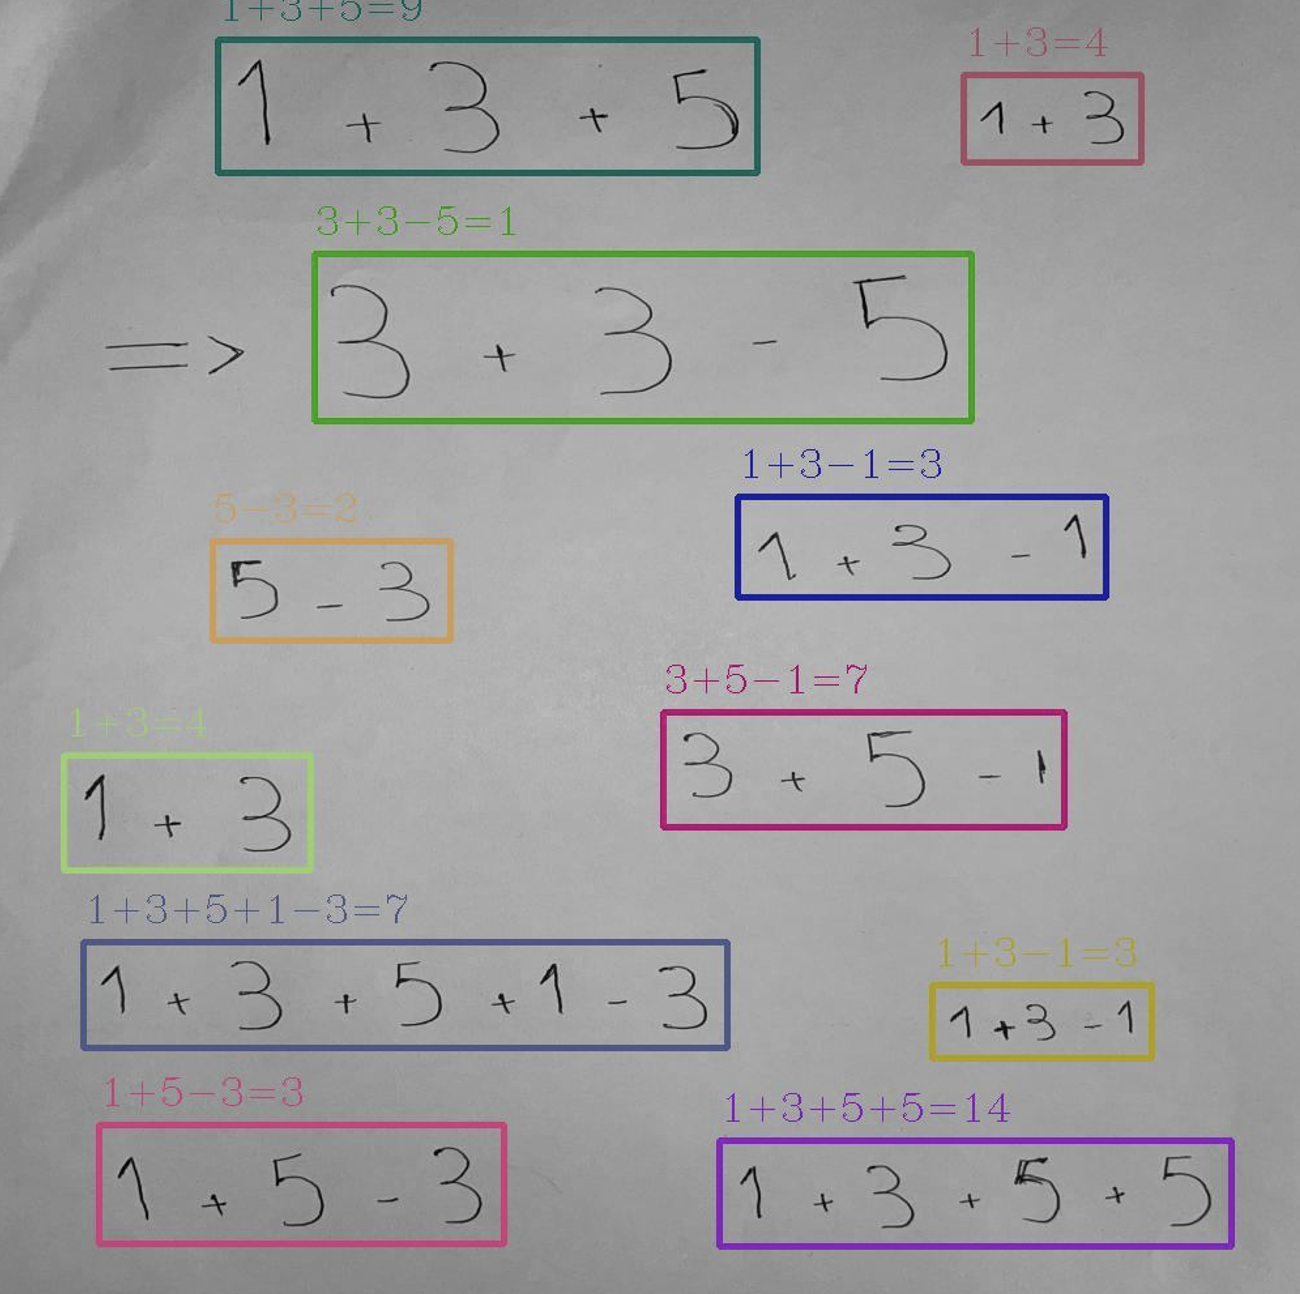 1+3+5=9
1 + 3 + 5
1+3=4
1 + 3
3+3-5=1
=> 3 + 3 - 5
1+3-1=3
1 + 3 - 1
5-3=2
5 - 3
3+5-1=7
3 + 5 - 1
1+3=4
1 + 3
1+3+5+1-3=7
1 + 3 + 5 + 1 - 3
1+3-1=3
1 + 3 - 1
1+5-3=3
1 + 5 - 3
1+3+5+5=14
1 + 3 + 5 + 5